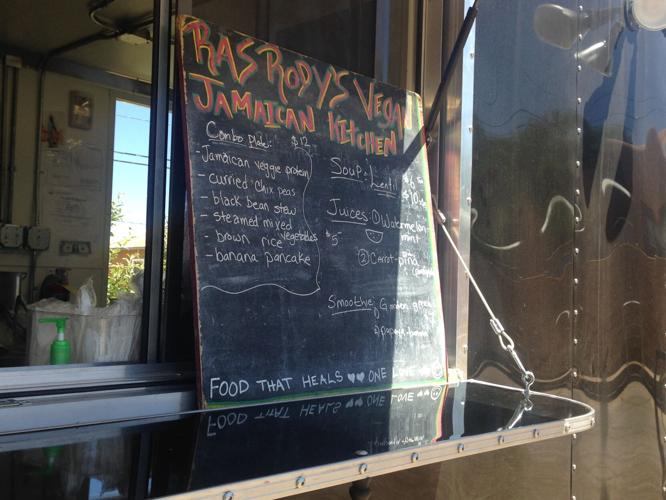 RAS RODY'S VEGAN
JAMAICAN KITCHEN
Combo Plate: $12
Jamaican veggie protein
- curried chix peas
- black bean stew
- steamed mixed
vegetables
- brown rice
- banana pancake
Soup - Lentil
$10
Juices: ① Watermelon
mint
$5
② Carrot-
Smoothie
FOOD THAT HEALS ♥♥ ONE LOVE ♥